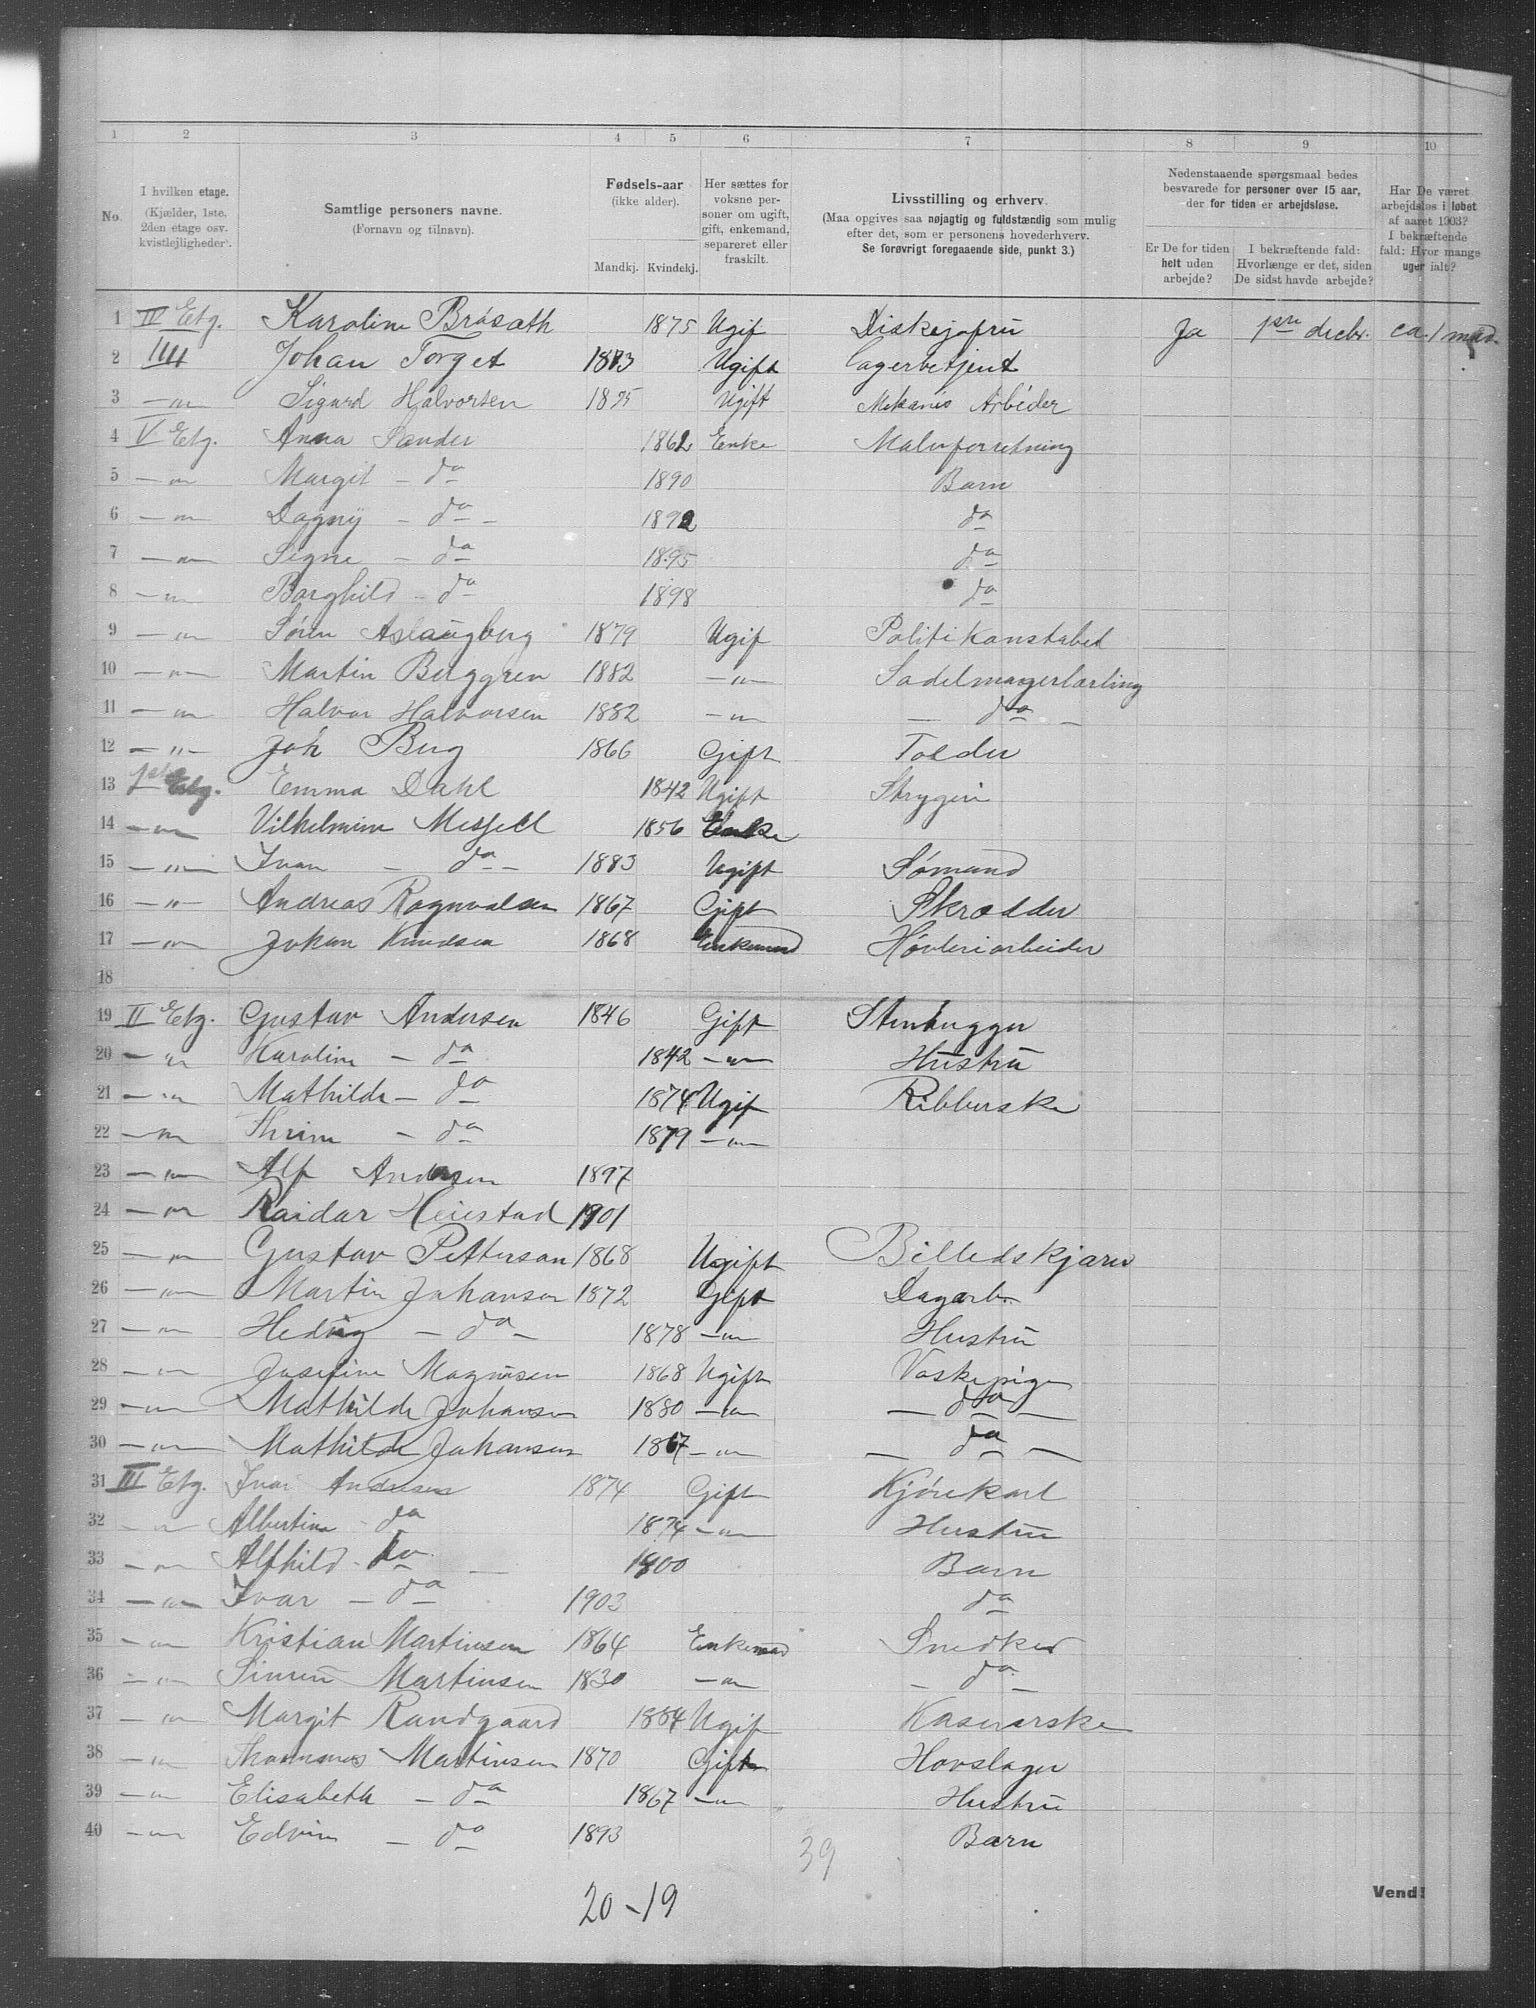 1 2 3 4 5 6 7 8 9 10
No.
I hvilken etage. (Kjælder, 1ste, 2den etage osv. kvistlejligheder).
Samtlige personers navne. (Fornavn og tilnavn).
Fødsels-aar (ikke alder).
Mandkj. Kvindekj.
Her sættes for voksne personer om ugift, gift, enkemand, separeret eller fraskilt.
Livsstilling og erhverv.
(Maa opgives saa nøjagtig og fuldstændig som mulig efter det, som er personens hovederhverv.
Se forøvrigt foregaaende side, punkt 3.)
Nedenstaaende spørgsmaal bedes besvarede for personer over 15 aar, der for tiden er arbejdsløse.
Er De for tiden helt uden arbejde?
I bekræftende fald: Hvorlænge er det, siden De sidst havde arbejde?
Har De været arbejdsløs i løbet af aaret 1903? I bekræftende fald: Hvor mange uger ialt?
1 II Etg. Karoline 1875 Ugif Ja ca. 1
2 IIII Johan Torget Ugift Lagerbetjent
3 —"— Sigurd Halvorsen Ugift Mekanis Arbeider
4 V Etg. Anna Sander 1862 Enke
5 —"— Margit – do 1890 Barn
6 —"— Dagny – do – 1892 do
7 —"— Signe – do 1895 do
8 —"— Borghild – do 1898 do
9 —"— Søren Aslaugberg 1879 Ugif Politikonstabel
10 —"— Martin Berggren 1882 —"— Sadelmagerlærling
11 —"— Halvor Halvorsen 1882 —"— — do —
12 —"— Joh Berg 1866 Gift
13 1ste Etg. Emma Dahl 1842 Ugift Strygeri
14 —"— Vilhelmine Messell 1856 Enke
15 —"— Ivan – do – 1883 Ugift Sømand
16 —"— Andreas Ragnvalsen 1867 Gift Skrædder
17 —"— Johan Knudsen 1868 Enkemand Høvleriarbeider
18
19 II Etg. Gustav Andersen 1846 Gift Stenhugger
20 —"— Karoline – do 1842 —"— Hustru
21 —"— Mathilde – do 1874 Ugif
22 —"— Thrine – do 1879 —"—
23 —"— Alf Andersen 1897
24 —"— Raidar Heiestad 1901
25 —"— Gustav Petterson 1868 Ugift Billedskjærer
26 —"— Martin Johanson 1872 Gift Dagarb.
27 —"— Hedvig – do – 1878 —"— Hustru
28 —"— Josefine Magnusen 1868 Ugift Vaskepige
29 —"— Mathilde Johansen 1880 —"— — do —
30 —"— Mathilde Johansen 1867 —"— — do —
31 III Etg. Ivar Andersen 1874 Gift Kjørekarl
32 —"— Albertine – do 1874 —"— Hustru
33 —"— Alfhild – do 1900 Barn
34 —"— Ivar – do 1903 do
35 —"— Kristian Martinsen 1864 Enkemad Snedker
36 —"— Simen Martinsen 1830 —"— – do –
37 —"— Margit Randgaard 1884 Ugif Kasererske
38 —"— Thommas Martinsen 1870 Gift Hovslager
39 —"— Elisabeth – do 1867 —"— Hustru
40 —"— Edvin – do 1893 Barn
39
20–19
Vend!